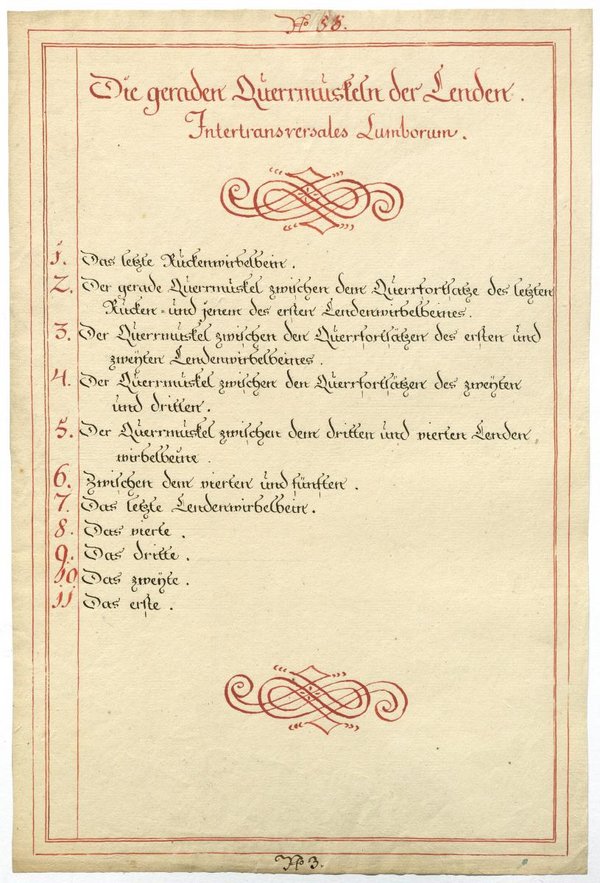 No 55.
Die geraden Querrmuskeln der Lenden.
Intertransversales Lumborum.
1. Das letzte Rückenwirbelbein.
2. Der gerade Querrmuskel zwischen dem Querrfortsatze des letzten
Rücken- und jenem des ersten Lendenwirbelbeines.
3. Der Querrmuskel zwischen den Querrfortsätzen des ersten und
zweyten Lendenwirbelbeines.
4. Der Querrmuskel zwischen den Querrfortsätzen des zweyten
und dritten.
5. Der Querrmuskel zwischen dem dritten und vierten Lenden
wirbelbeine.
6. Zwischen dem vierten und fünften.
7. Das letzte Lendenwirbelbein.
8. Das vierte.
9. Das dritte.
10 Das zweyte.
11 Das erste.
No 3.